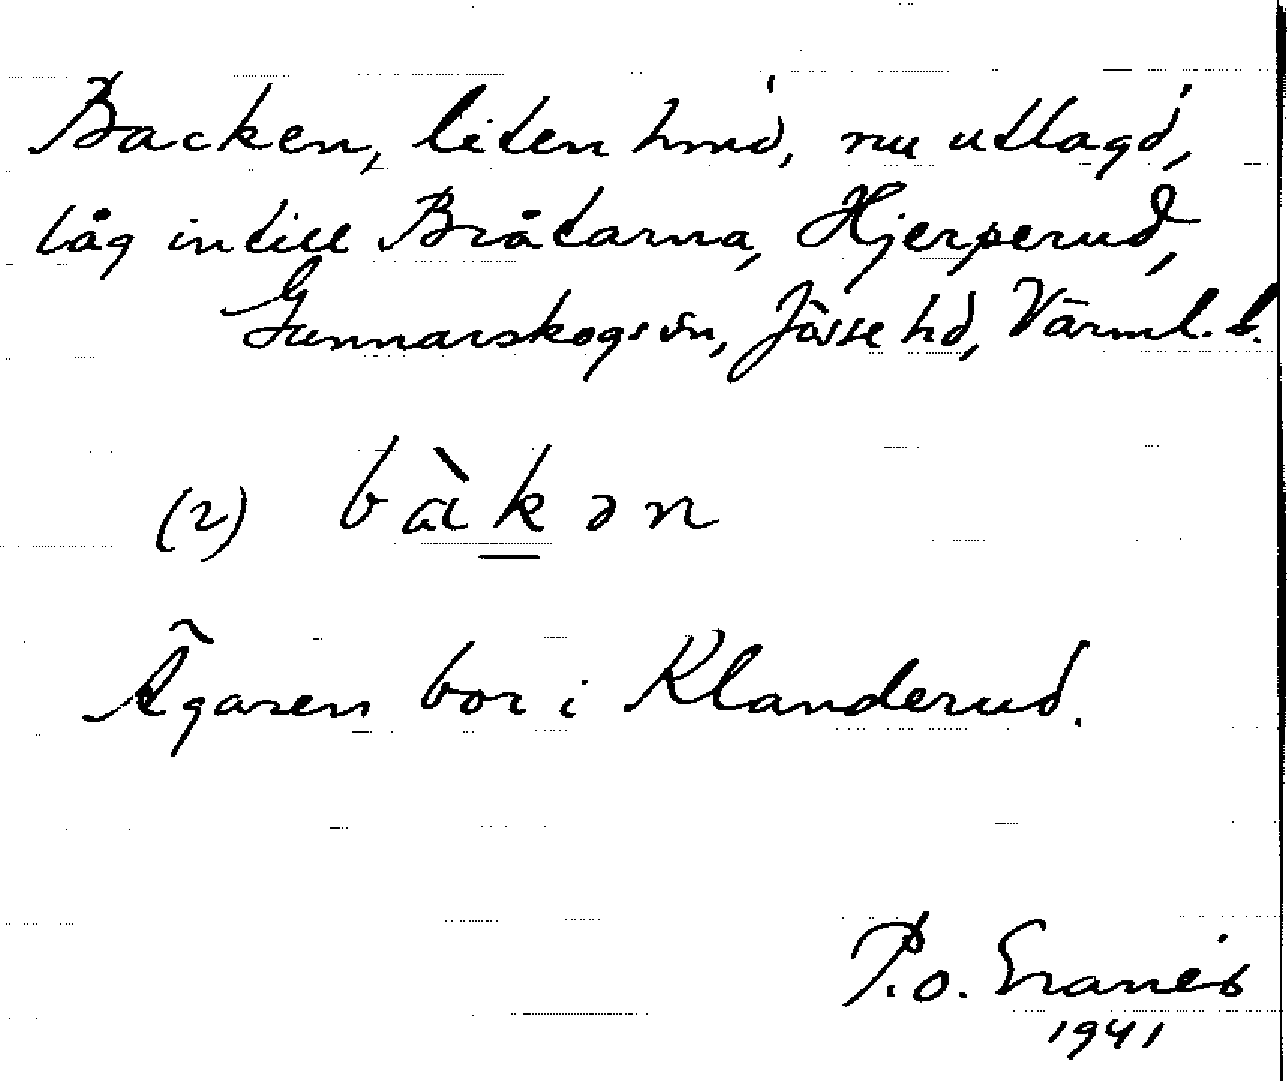 Backen, liten hmd, nu utlagd,
låg intill Bråtarna, Hjerperud,
Gunnarskogs sn, Jösse hd, Värml. l.
(2) bàkən
Ägaren bor i Klanderud.
P.o.
1941